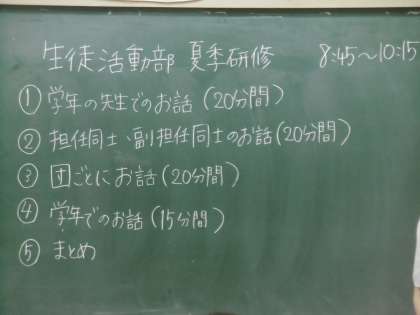 生徒活動部 夏季研修 8:45〜10:15
①学年の先生でのお話(20分間)
②担任同士、副担任同士のお話(20分間)
③団ごとにお話(20分間)
④学年でのお話(15分間)
⑤まとめ